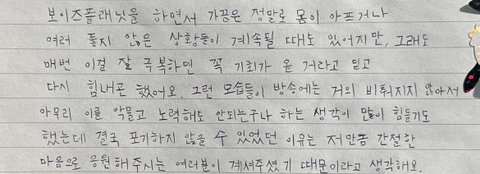 보이즈플래닛을 하면서 가끔은 정말로 몸이 아프거나
여러 좋지 않은 상황들이 계속될 때도 있어지만, 그래도
매번 이걸 잘 극복하면 꼭 기회가 올 거라고 믿고
다시 힘내곤 했어요. 그런 모습들이 방송에는 거의 비춰지지 않아서
아무리 이를 악물고 노력해도 안되는구나 하는 생각이 많이 힘들기도
했는데 결국 포기하지 않을 수 있었던 이유는 저만큼 간절한
마음으로 응원해주시는 여러분이 계셔주셨기 때문이라고 생각해요.